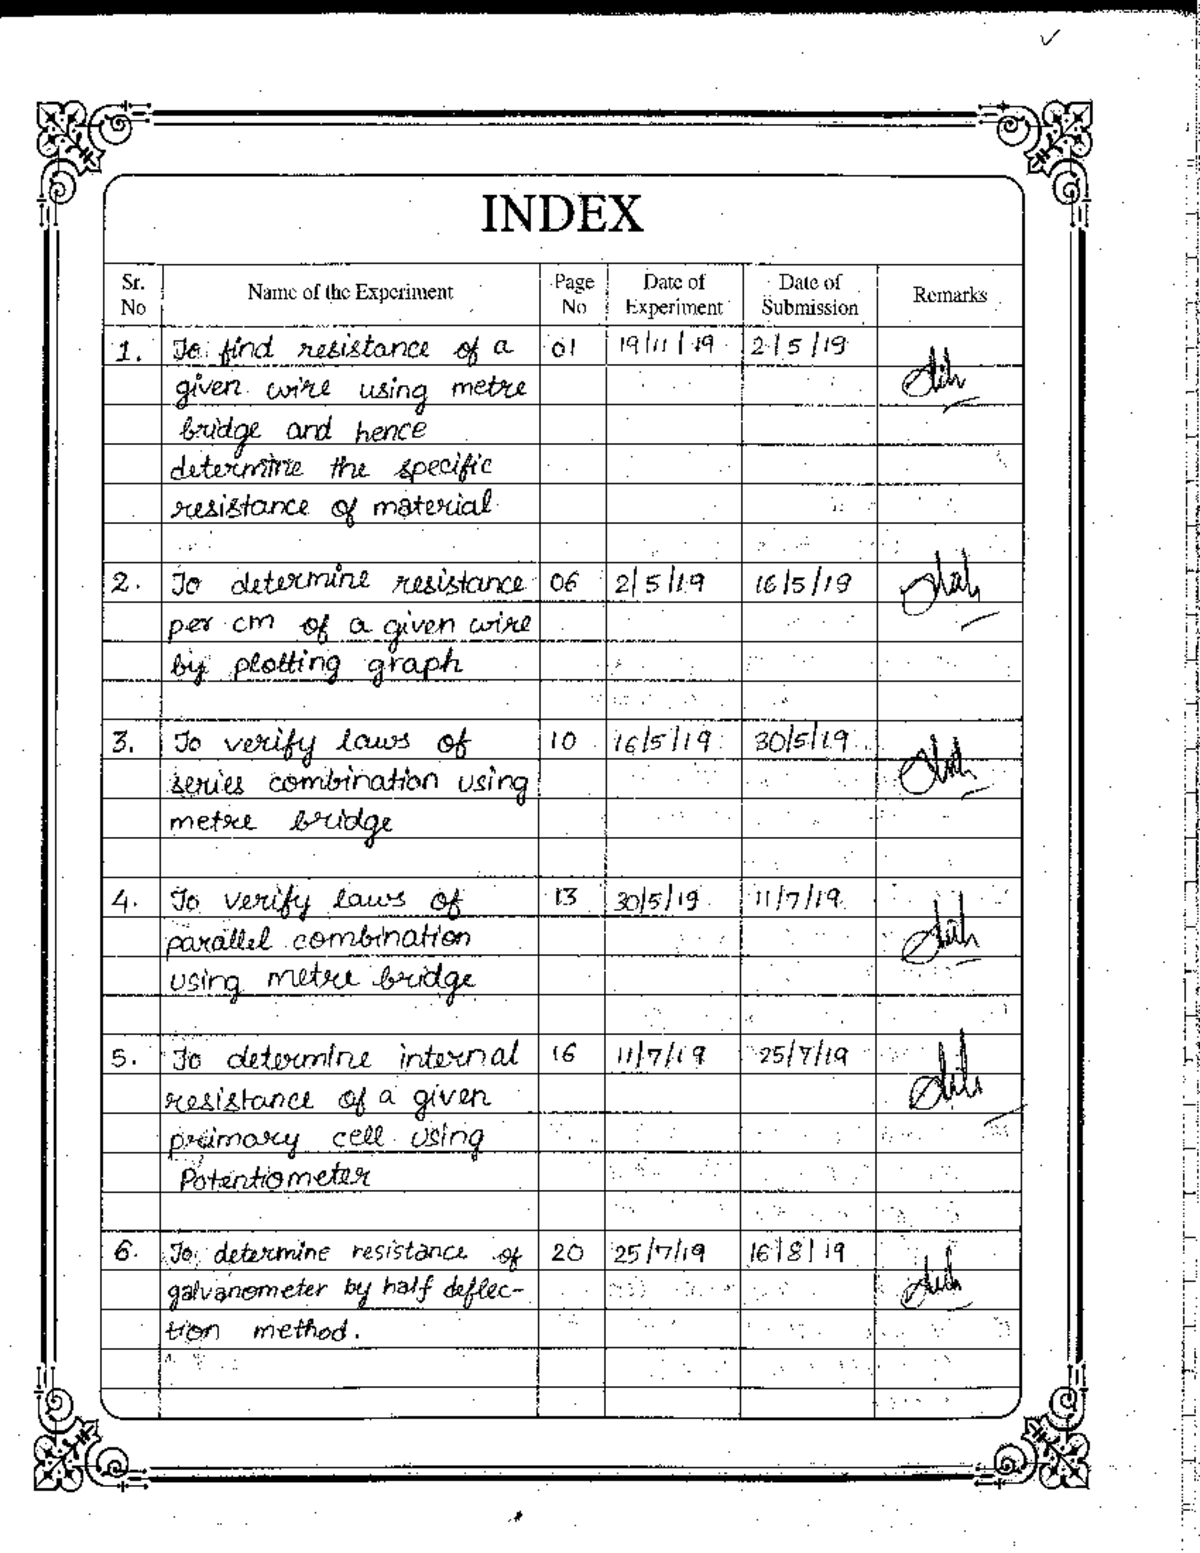 INDEX
Sr. No Name of the Experiment Page No Date of Experiment Date of Submission Remarks
1. To find resistance of a 01 19/11/19 2/5/19
given wire using metre
bridge and hence
determine the specific
resistance of material
2. To determine resistance 06 2/5/19 16/5/19
per cm of a given wire
by plotting graph
3. To verify laws of 10 16/5/19 30/5/19
series combination using
metre bridge
4. To verify laws of 13 30/5/19 11/7/19
parallel combination
using metre bridge
5. To determine internal 16 11/7/19 25/7/19
resistance of a given
primary cell using
Potentiometer
6. To determine resistance of 20 25/7/19 16/8/19
galvanometer by half deflec-
tion method.